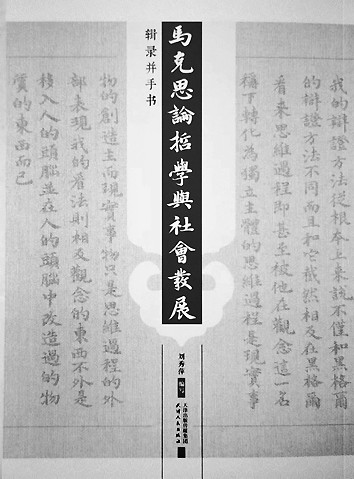 我的辯證方法從根本上來説不僅和黑格爾
的辯證方法不同而且和它截然相反在黑格爾
看來思維過程即甚至被他在觀念這一名
稱下轉化為獨立主體的思維過程是現實事
馬克思論哲學與社會發展
辑录并手书
刘秀萍
编写
天津出版传媒集团
天津人民出版社
物的創造主而現實事物只是思維過程的外
部表現我的看法則相反觀念的東西不外是
移入人的頭腦並在人的頭腦中改造過的物
質的東西而已